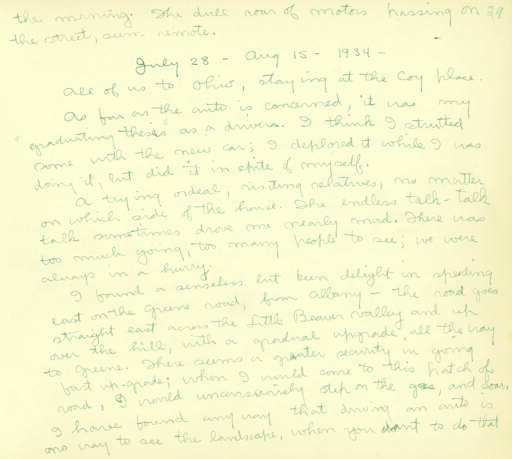 the morning. The dull roar of motors passing on 39
the street, seem remote.
July 28 - Aug 15 - 1934 -
All of us to Ohio, staying at the Coy place.
As far as the auto is concerned, it was my
"graduating thesis" as a driver. I think I strutted
some with the new car; I deplored it while I was
doing it, but did it in spite of myself.
A trying ordeal, visiting relatives, no matter
on which side of the house. The endless talk - talk
talk sometimes drove me nearly mad. There was
too much going, too many people to see; we were
always in a hurry.
I found a senseless but keen delight in speeding
east on the Greene road, from Albany - the road goes
straight east across the Little Beaver valley and up
over the hill, with a gradual upgrade all the way
to Greene. There seems a greater security in going
fast up-grade; when I would come to this patch of
road, I would unconsciously step on the gas, and soar.
I have found anyway that driving an auto is
no way to see the landscape, when you want to do that